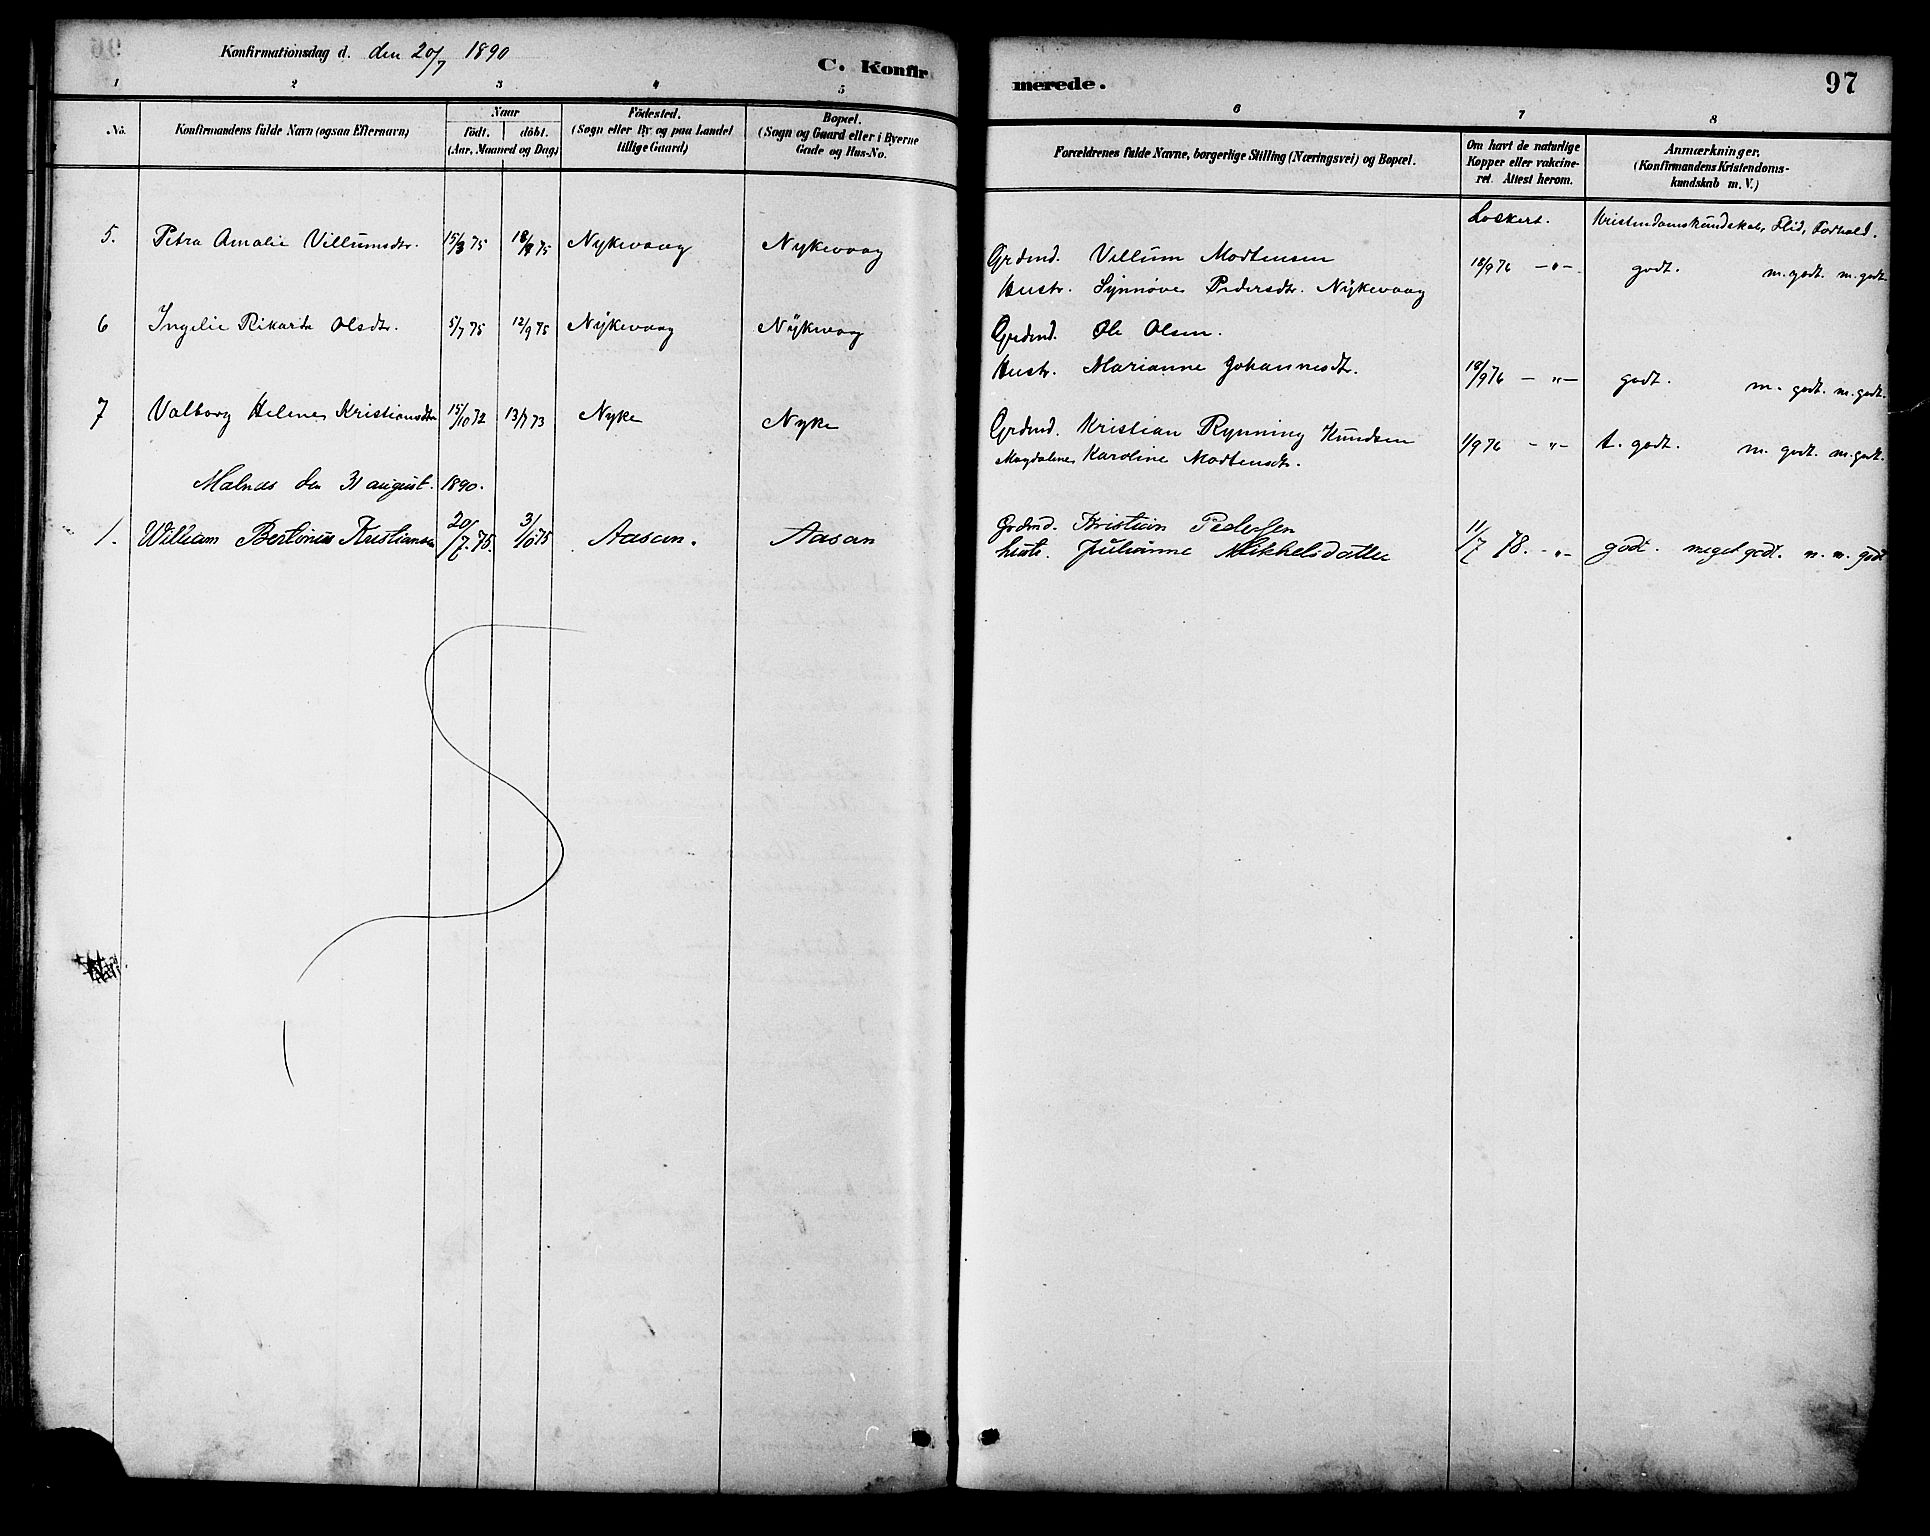 Konfirmationsdag d. den 20/7 1890
C. Konfir
merede.
97
1 2 3 4 5 6 7 8
No.
Konfirmandens fulde Navn (ogsaa Efternavn)
Naar
født. døbt.
(Aar, Maaned og Dag)
Födested.
(Sogn eller By og paa Landet
tillige Gaard)
Bopæl.
(Sogn og Gaard eller i Byerne
Gade og Hus-No.
Forældrenes fulde Navne, borgerlige Stilling (Næringsvei) og Bopæl.
Om havt de naturlige
Kopper eller vakcine-
ret. Attest herom.
Anmærkninger,
(Konfirmandens Kristendoms-
kundskab m. V.)
Lockert. Kristendomskundskab, Flid, Forhold.
5. Petra Amalie Villumsdtr. 75 75 Nykevaag Nykevaag Grdmd. Villum Mortensen 18/9 76 — " — godt. m. godt. m. godt.
Hustr. Synnøve Pedersdtr. Nykevaag
6 Ingelie Rikarda Olsdtr. 5/7 75 12/9 75 Nykevaag Nykvaag Grdmd. Ole Olsen.
Hustr. Marianne Johannesdtr. 18/9 76 — " — godt. m. godt. m. godt.
7 Valborg Helene Kristiansdtr 15/10 72 13/7 73 Nyke Nyke Grdmd. Kristian Rynning Knudsen 1/9 76 — " — t. godt. m. godt. m. godt.
Magdalene Karoline Mortensdtr.
Malnæs den 31 august. 1890.
1. William Bertonius Kristiansen 20/7. 75. 3/10 75 Aasan. Aasan Grdmd. Kristian Pedersen 11/7 78. — " — godt. meget godt. m. m. godt
hustr. Julianne Mikkelsdatter